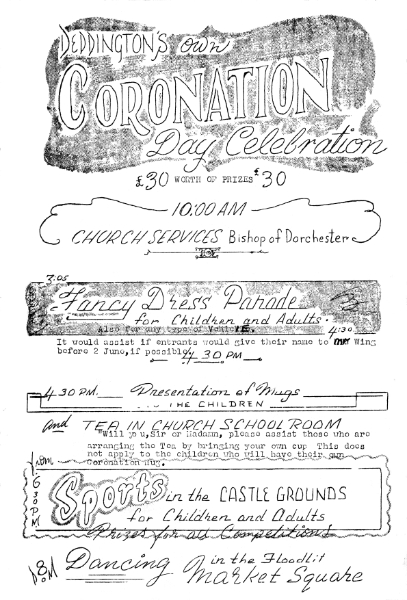 DEDDINGTON'S own
CORONATION
Day Celebration
£30 WORTH OF PRIZES £30
10:00 AM
CHURCH SERVICES Bishop of Dorchester
Fancy Dress Parade
for Children and Adults.
Also for any type of Vehicle. 4:30
It would assist if entrants would give their name to Wing
before 2 June, if possible 4.30 PM
4.30 PM. Presentation of Mugs
TO THE CHILDREN
and TEA IN CHURCH SCHOOL ROOM
"Will you, Sir or Madamn, please assist those who are
arranging the Tea by bringing your own cup This does
not apply to the children who will have their own
Coronation Mug.
from 6 30 PM
Sports in the CASTLE GROUNDS
for Children and Adults
Prizes for all Competitions
8 PM Dancing in the Floodlit
Market Square